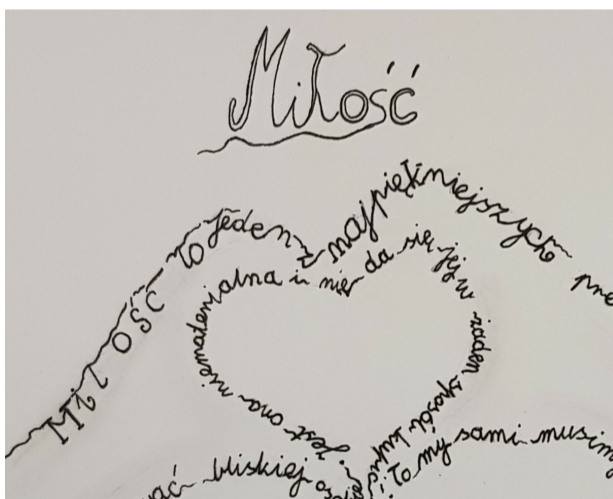 Miłość
Miłość to jeden z najpiękniejszych
jest ona niematerialna i nie da się jej w żaden sposób kupić
i to my sami musimy
bliskiej